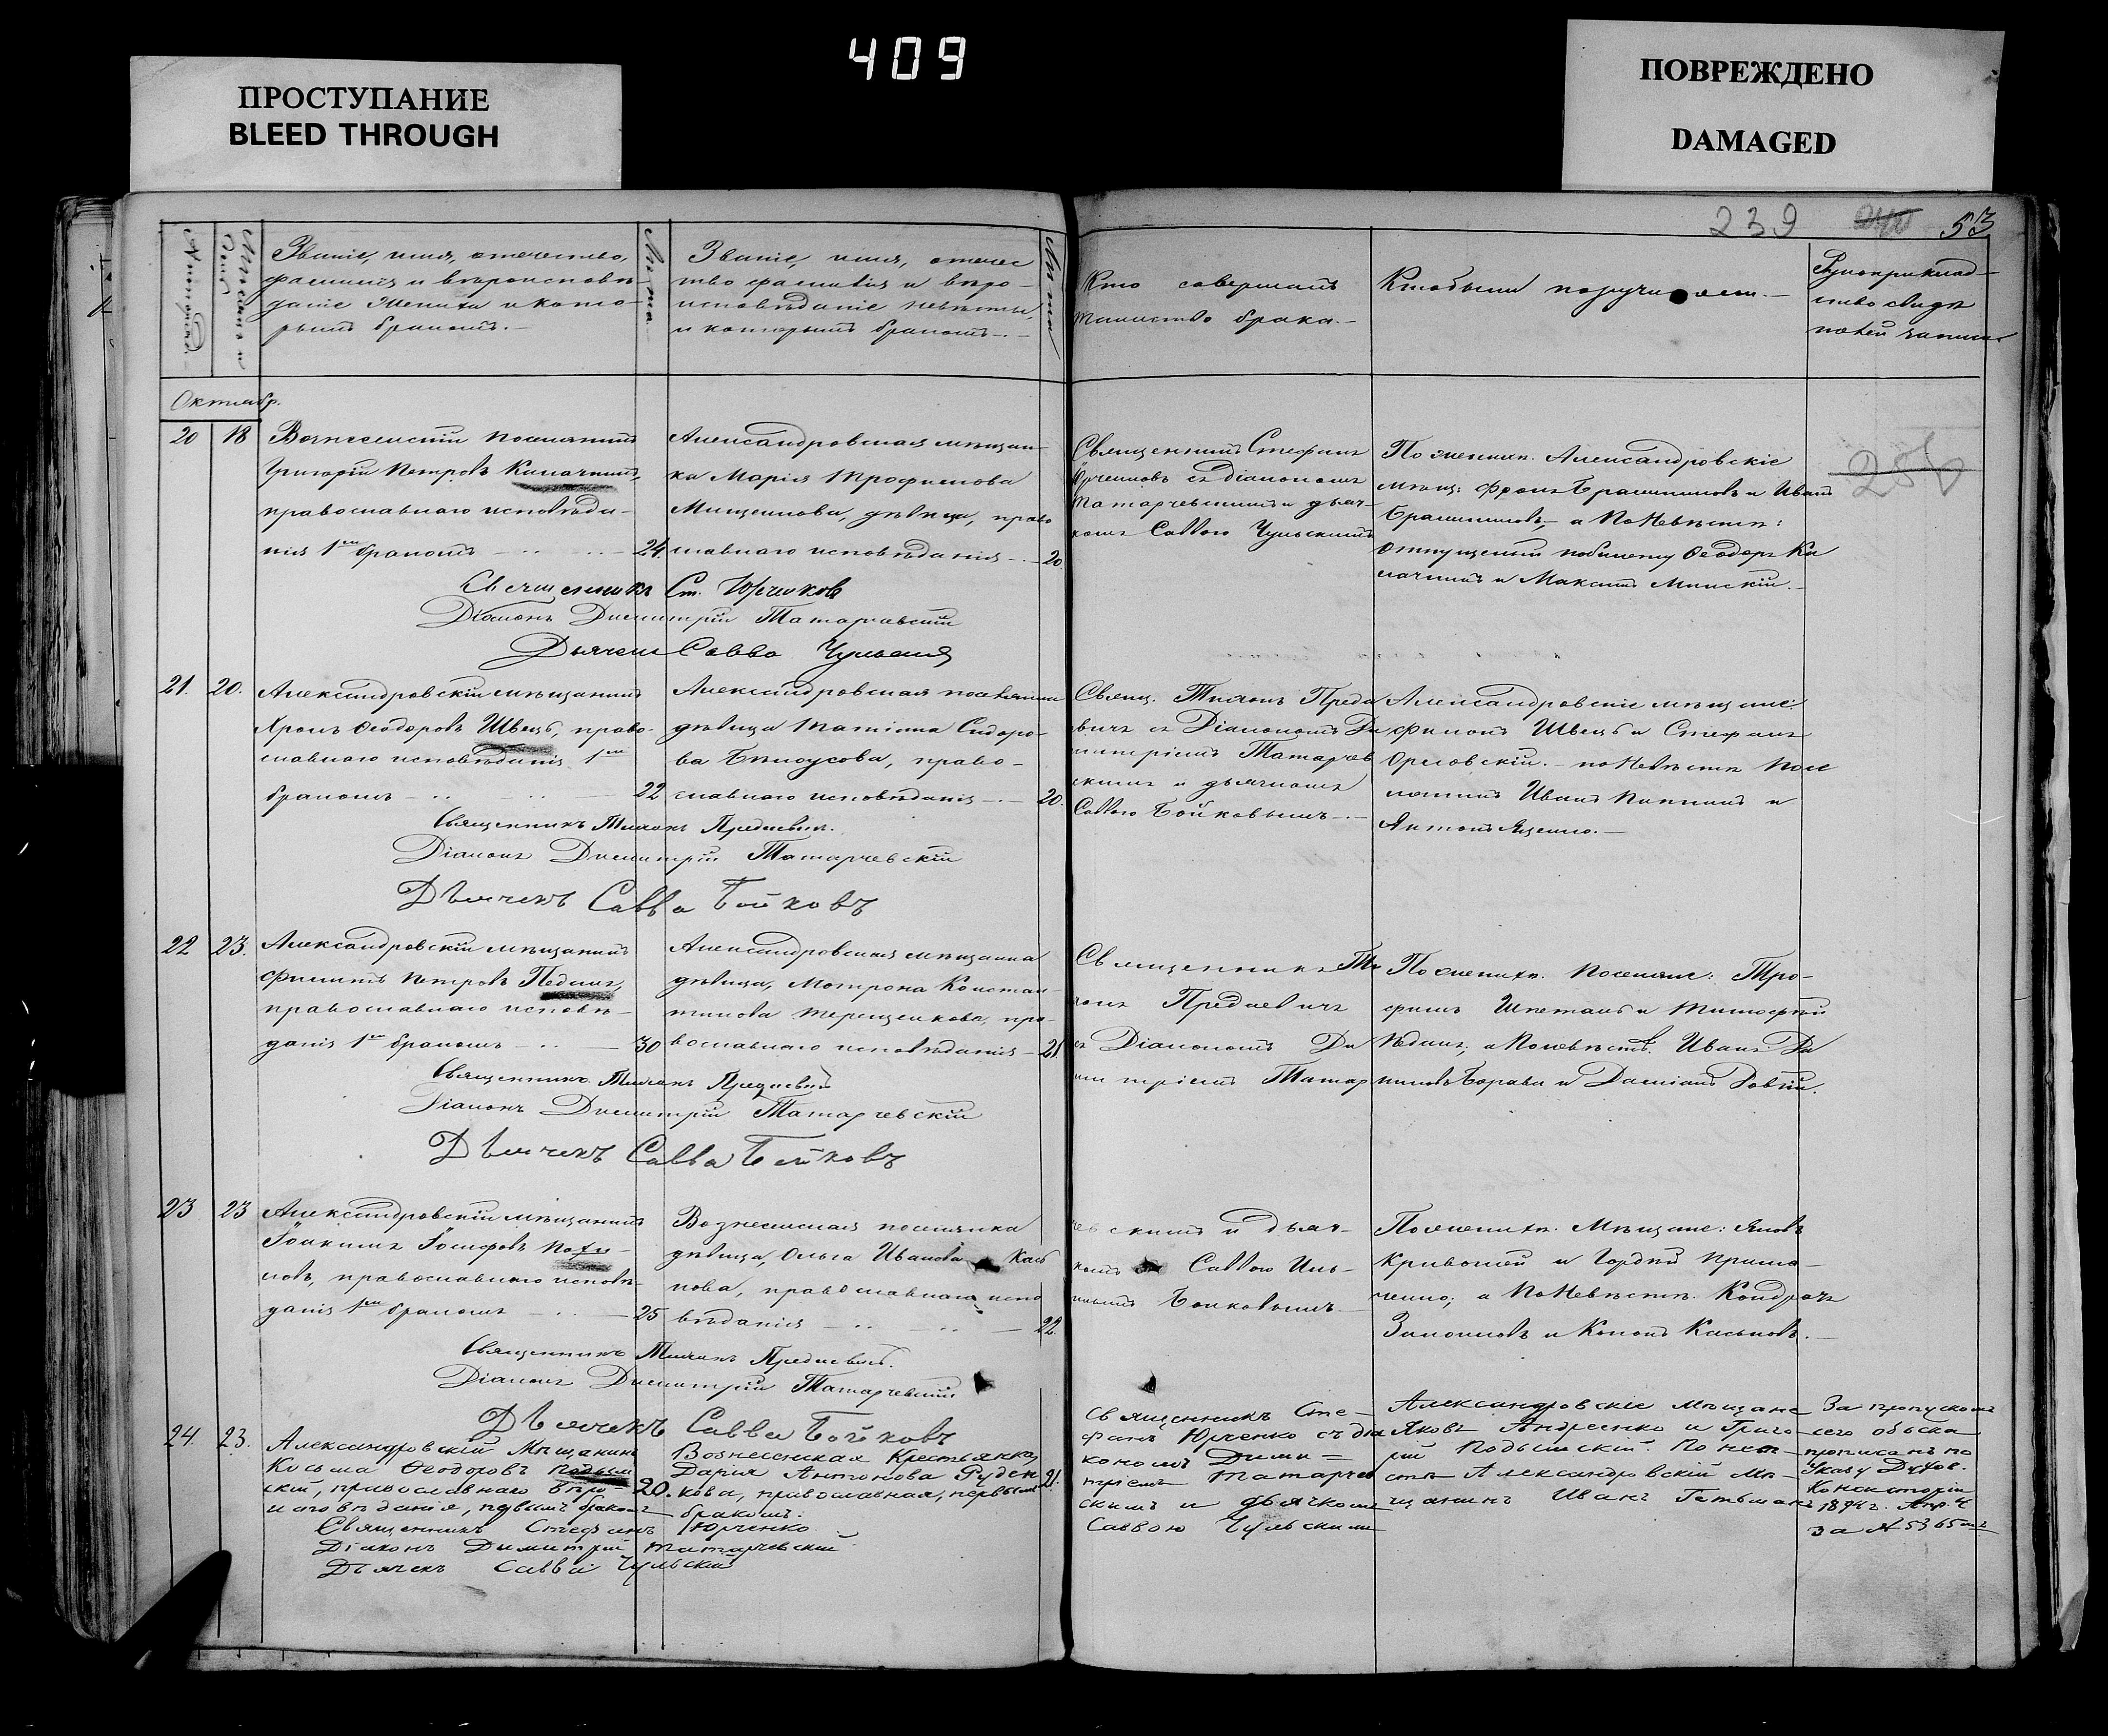 409
ПРОСТУПАНИЕ
BLEED THROUGH
ПОВРЕЖДЕНО
DAMAGED
239 240 53
Званіе, имя, отечество,
фамилія и вѣроисповѣ-
даніе жениха и кото-
рымъ бракомъ.-
Лѣта.
Званіе, имя, отечес
тво фамилія и вѣро-
исповѣданіе невѣсты,
и которымъ бракомъ.-
Лѣта
Кто совершалъ
таинство брака.-
Кто были поручители.-
Рукоприклад-
ство свидѣ
телей
Октябр.
20 18
Вознесенскій поселянинъ
Григорій Петровъ Калачникъ,
православнаго исповѣда-
нія 1мъ бракомъ - 24
Александровская мѣщан-
ка Марія Трофимова
Мищенкова, дѣвица, право
славнаго исповѣданія - 20.
Священникъ Стефанъ
Юрченковъ съ Діакономъ
Татарчевскимъ и дьяч-
комъ Саввою Чульскимъ
По женихѣ. Александровскіе
мѣщ:
а По Невѣстѣ:
Отпущенный по билету Ѳеодоръ Ка
лачникъ и Максимъ Минскій.-
Священникъ Ст. Юрченковъ
Діаконъ Димитрій Татарчевскій
Дьячекъ Савва Чульскій
21. 20.
Александровскій мѣщанинъ
Ѳеодоровъ Швецъ, право-
славнаго исповѣданія 1мъ
бракомъ - 22
Александровская поселянка
дѣвица Татіана Сидоро-
ва Бѣлоусова, право-
славнаго исповѣданія - 20.
Свящ. Тихонъ Преда
евичъ съ Діакономъ Ди
митріемъ Татарчев
скимъ и дьячкомъ
Саввою Бойковымъ.-
Александровскіе мѣщане:
Филипъ Швецъ и Стефанъ
Орловскій.- по Невѣстѣ Посе
лянинъ Иванъ и
Антонъ Яценко.-
Священникъ Тихонъ Предаевичъ.
Діаконъ Димитрій Татарчевскій
Дьячекъ Савва Бойковъ
22 23.
Александровскій мѣщанинъ
Филипъ Петровъ Педикъ,
православнаго исповѣ-
данія 1мъ бракомъ - 30
Александровская мѣщанка
дѣвица, Мотрона Констан-
тинова Терещенкова, пра-
вославнаго исповѣданія - 21.
Священникъ Ти
хонъ Предаевичъ
съ Діакономъ Ди
митріемъ Татар
По женихѣ. Поселяне: Тро-
фимъ и Тимофѣй
Педикъ; а По невѣстѣ: Иванъ
и Даміанъ
Священникъ Тихонъ Предаевичъ
Діаконъ Димитрій Татарчевскій
Дьячекъ Савва Бойковъ
23 23
Александровскій мѣщанинъ
Іоакимъ Іосифовъ
православнаго исповѣ-
данія 1мъ бракомъ - 25
Вознесенская поселянка
дѣвица, Ольга Иванова Кась
нова, православнаго испо
вѣданія - 22.
чевскимъ и дьяч-
комъ Саввою Иль-
инымъ Бойковымъ.-
По женихѣ. Мѣщане: Яковъ
Кривошей и Гордій
а По Невѣстѣ. Кондратъ
и Кононъ Касьновъ.-
Священникъ Тихонъ Предаевичъ.
Діаконъ Димитрій Татарчевскій
Дьячекъ Савва Бойковъ
24. 23.
Александровскій Мѣщанинъ
Косьма Ѳеодоровъ Подым
скій, православнаго вѣро- 20.
исповѣданія, первымъ бракомъ
Вознесенская Крестьянка
Дарія Антонова Руден
кова, православная, первымъ 21.
бракомъ.
Священникъ Сте-
фанъ Юрченко съ діа
кономъ Дими=
тріемъ Татарчев
скимъ и дьячкомъ
Саввою Чульскимъ
Александровскіе Мѣщане
Яковъ Андреенко и Григо-
рій Подымскій. По невѣ-
стѣ Александровскій Мѣ-
щанинъ Иванъ Гетьманъ
За пропускомъ
сего обыска
прописанъ по
Указу Духов.
Консисторіи
1894 г. Апр. 4
за № 5365мъ
Священникъ Стефанъ Юрченко
Діаконъ Димитрій Татарчевскій
Дьячекъ Савва Чульскій